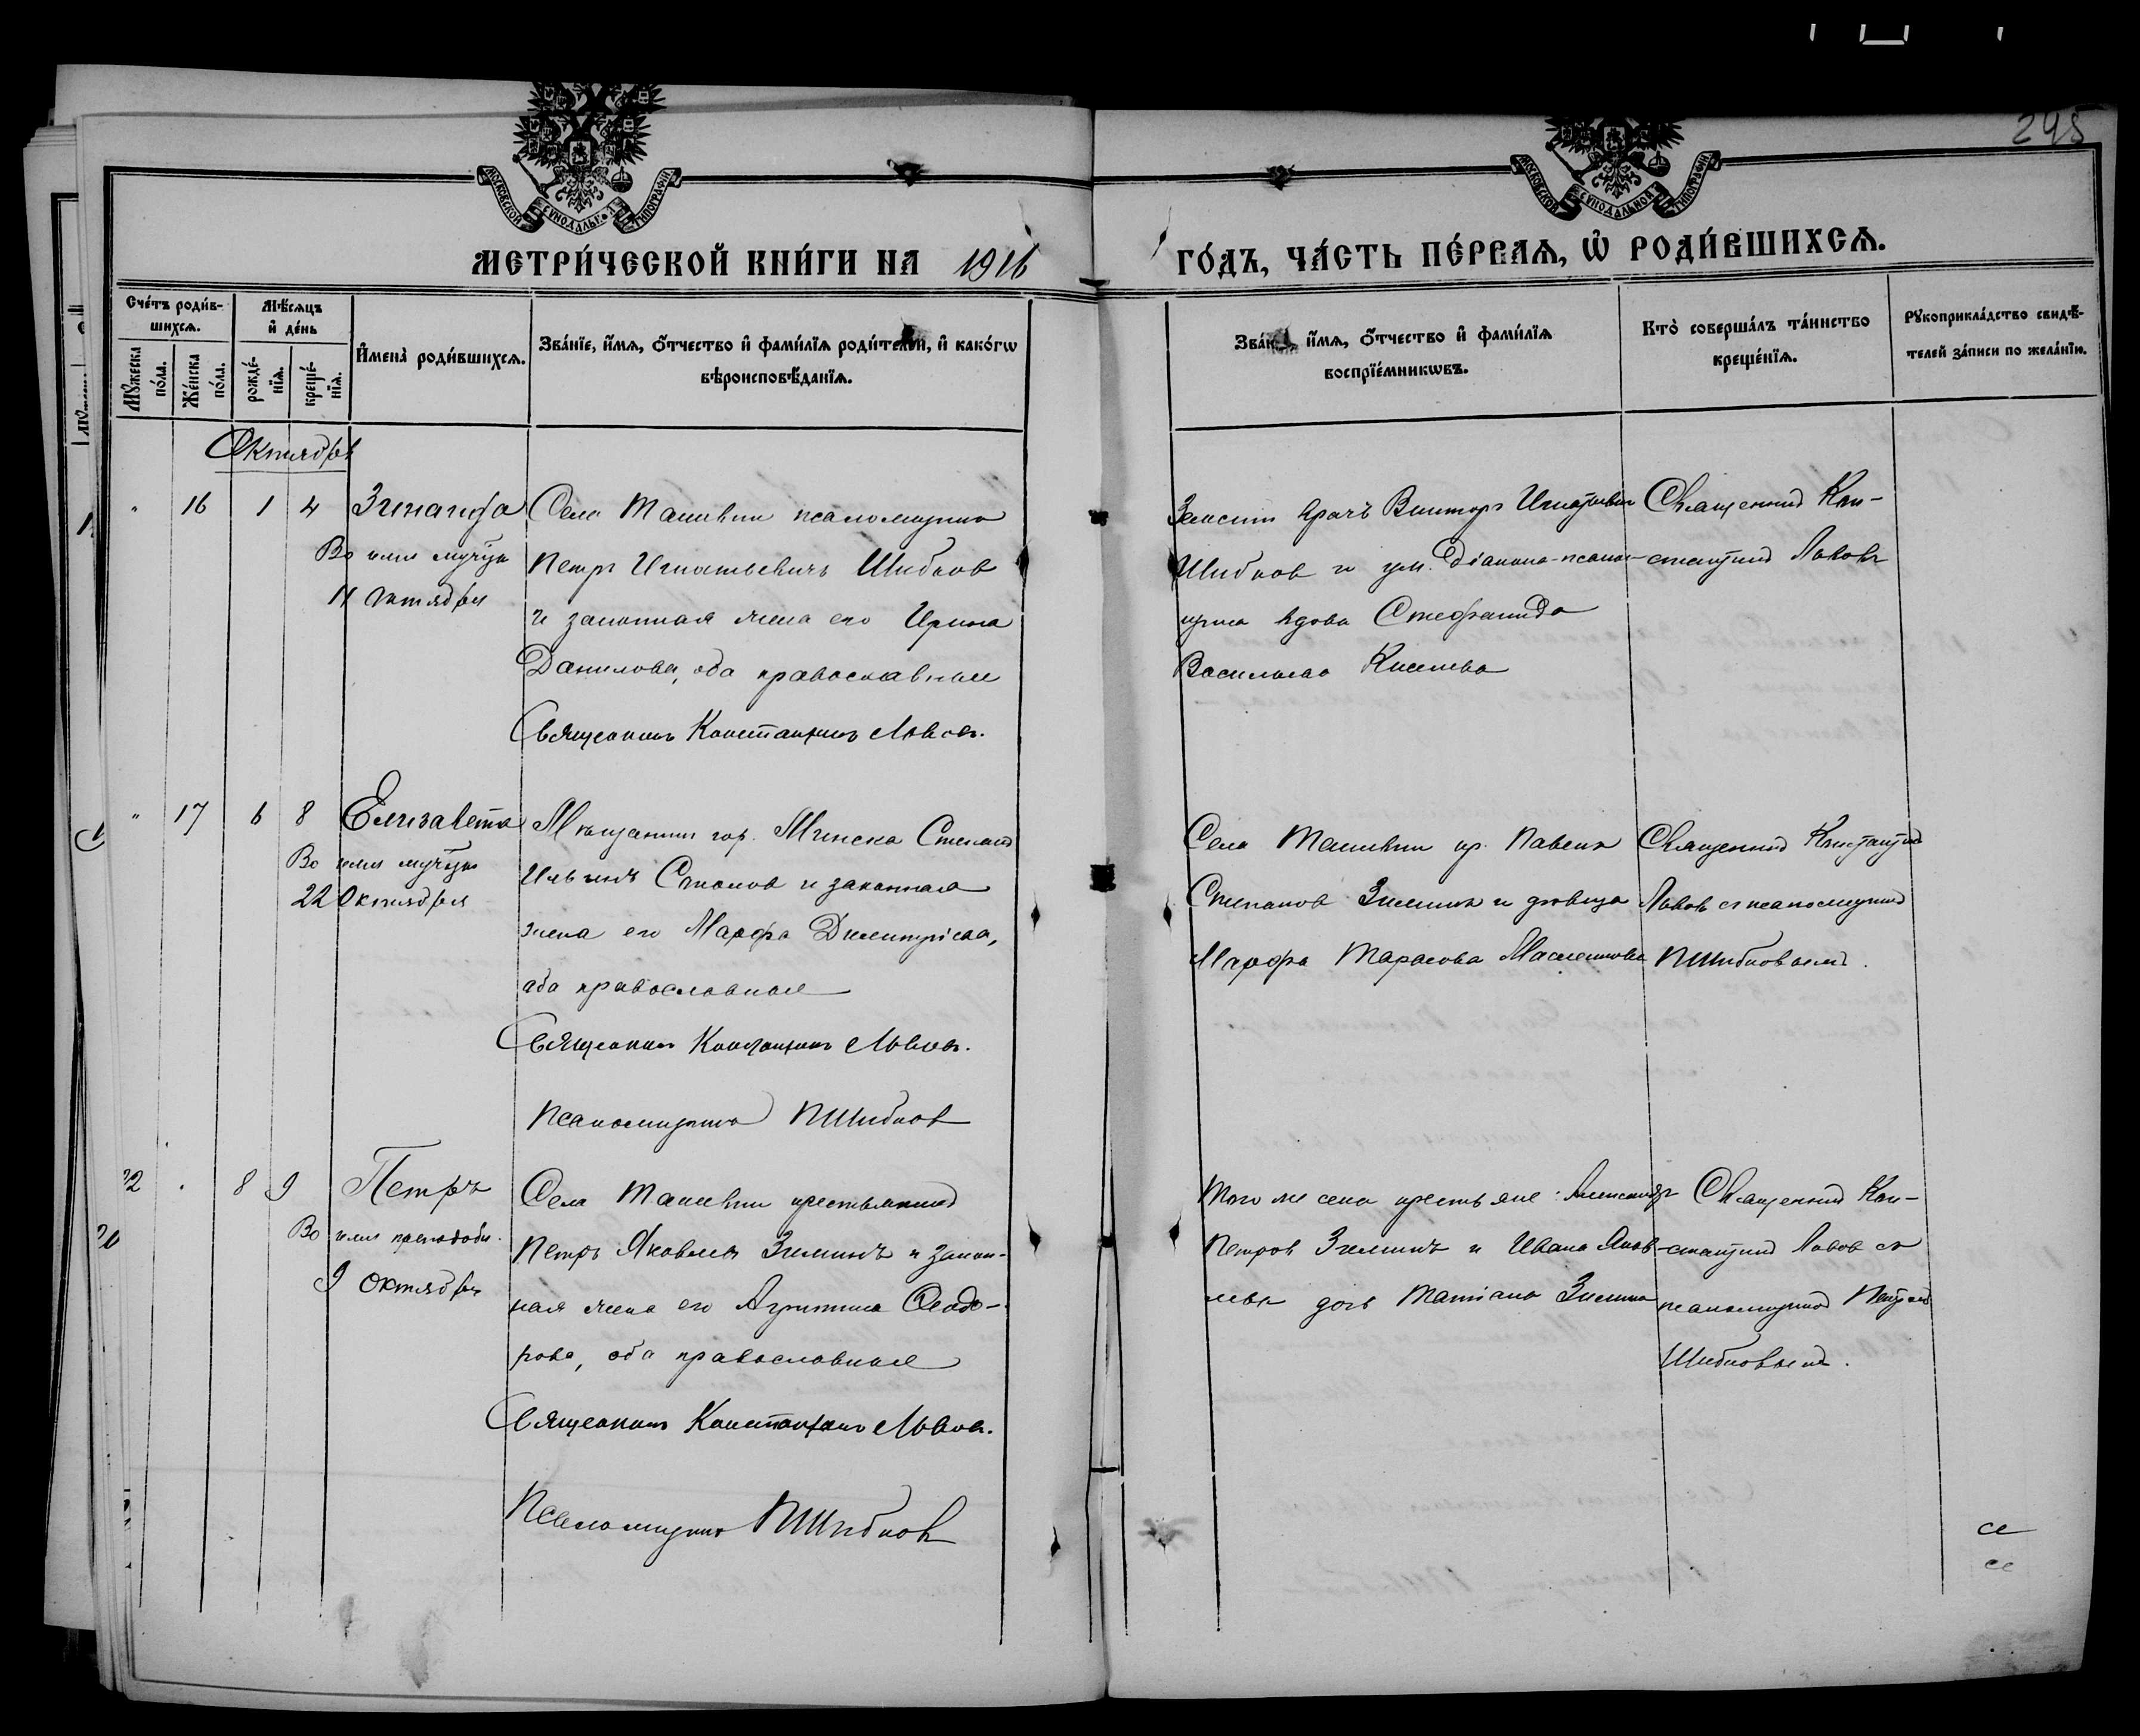 295
МОСКОВСКОЙ СѴНОДАЛЬНОЙ ТИПОГРАФІИ
МОСКОВСКОЙ СѴНОДАЛЬНОЙ ТИПОГРАФІИ
МЕТРИ́ЧЕСКОЙ КНИ́ГИ НА 1916
ГО́ДЪ, ЧА́СТЬ ПЕ́РВАѦ, Ѽ РОДИ́ВШИХСѦ.
Сче́тъ роди́в-
шихсѧ.
Мꙋжеска
по́ла.
Же́нска
по́ла.
Мѣ́сѧцъ
и҆ де́нь
рожде́-
нїѧ.
креще́-
нїѧ.
И҆мена̀ роди́вшихсѧ.
Зва́нїе, и҆́мѧ, ѻ҆́тчество и҆ фами́лїѧ роди́телей, и҆ како́гѡ
вѣроисповѣ́данїѧ.
Зва́нїе, и҆́мѧ, ѻ҆́тчество и҆ фами́лїѧ
воспрїе́мникѡвъ.
Кто̀ соверша́лъ та́инство
креще́нїѧ.
Рꙋкоприкла́дство свидѣ́-
телей за́писи по жела́нїю.
Октябрь
" 16 1 4 Зинаида
Во имя мучцы
11 Октября
Села псаломщикъ
Петръ Игнатьевичъ Шибков
и законная жена его Ирина
Данилова, оба православные
Священникъ Константинъ Львовъ.
Земский врачъ Викторъ Игнатьевич
Шибков и ум. діакона-псалом-
щика вдова Стефанида
Васильева
Священник Кон-
стантин Львовъ
" 17 6 8 Елизавета
Во имя мучцы
22 Октября
Мѣщанинъ гор. Минска Степанъ
Ильинъ и законная
жена его Марфа Димитріева,
оба православные
Священникъ Константинъ Львовъ.
Псаломщикъ ПШибков
Села кр. Павелъ
Степанов Зиминъ и дѣвица
Марфа Тарасова
Священник Константин
Львов съ псаломщиком
ПШибковымъ.
22 " 8 9 Петръ
Во имя преподобн.
9 Октября
Села крестьянинъ
Петръ Яковлевъ Зиминъ и закон-
ная жена его Агриппина Ѳеодо-
рова, оба православные
Священникъ Константинъ Львовъ.
Псаломщикъ ПШибков
Того же села крестьяне: Александр
Петров Зиминъ и Ивана Яков-
лева дочь Татіана Зимина
Священник Кон-
стантин Львов съ
псаломщиком Петром
Шибковымъ.